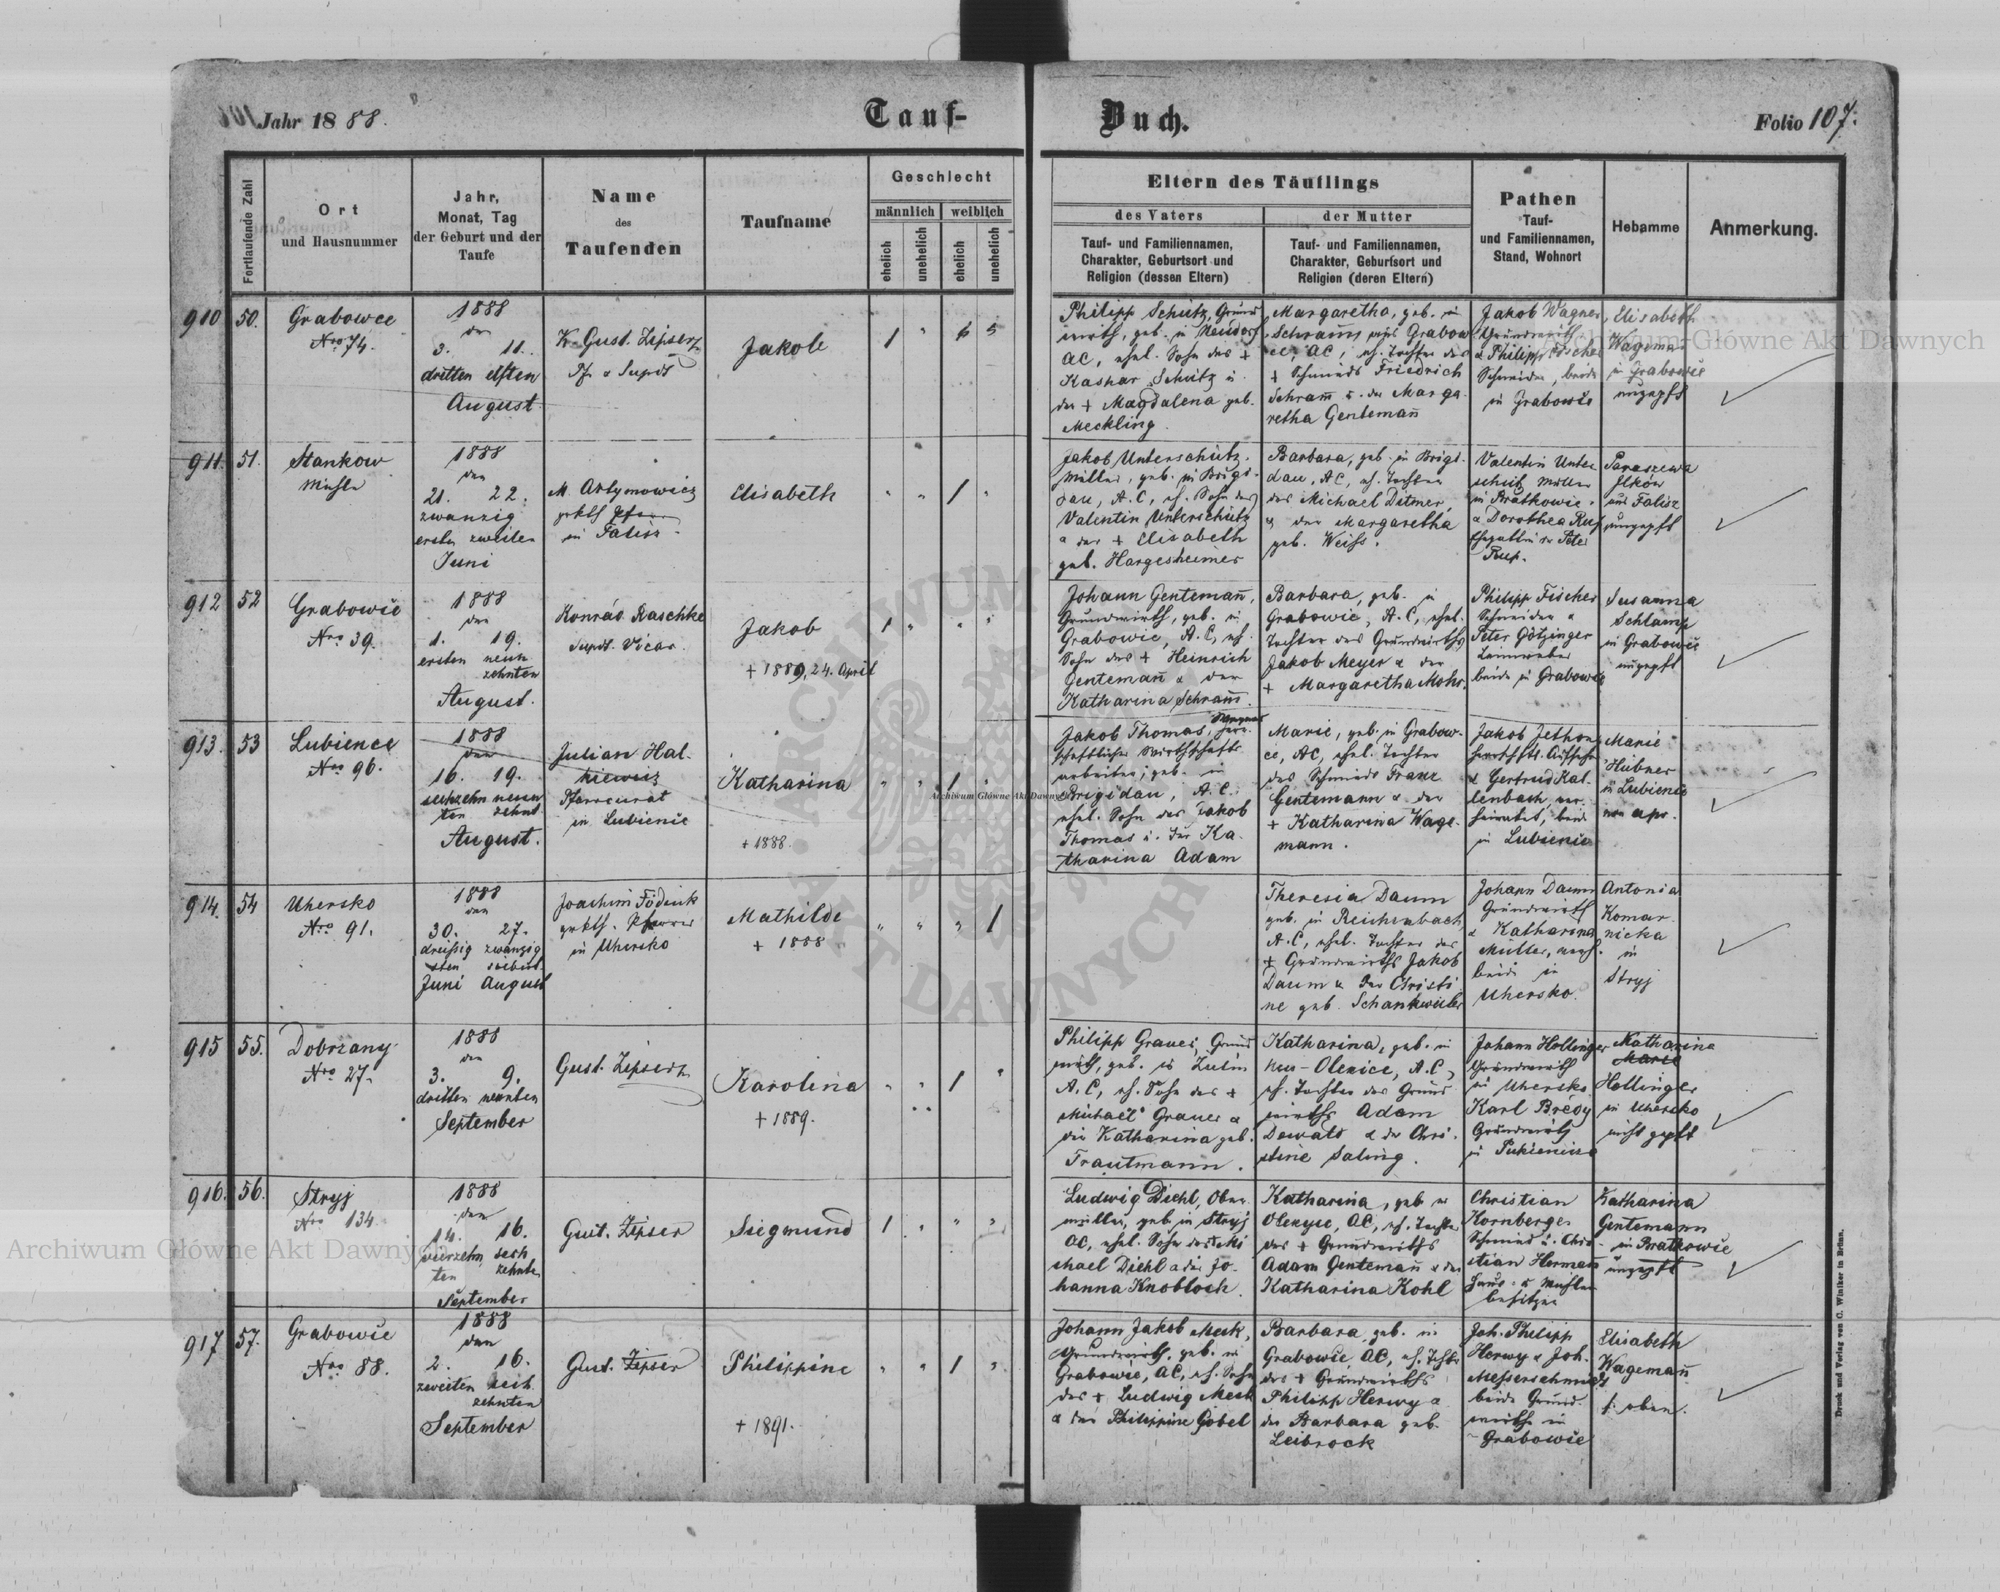 Jahr 1888.
Tauf-
Buch.
Folio 107.
Fortlaufende Zahl
Ort
und Hausnummer
Jahr,
Monat, Tag
der Geburt und der
Taufe
Name
des
Taufenden
Taufname
Geschlecht
männlich
weiblich
ehelich
unehelich
ehelich
unehelich
Eltern des Täuflings
des Vaters
der Mutter
Tauf- und Familiennamen,
Charakter, Geburtsort und
Religion (dessen Eltern)
Tauf- und Familiennamen,
Charakter, Geburtsort und
Religion (deren Eltern)
Pathen
Tauf-
und Familiennamen,
Stand, Wohnort
Hebamme
Anmerkung.
910
50.
Grabowce
Nro 74.
1888
den
3. 11.
dritten elften
August
K. Gust. Zipser
Pf. & Supdt
Jakob
1
Philipp Schütz, Grund
wirth, geb. in Neudorf
AC, ehel. Sohn des +
Kaspar Schütz u.
der + Magdalena geb.
Meckling.
Margaretha, geb. in
Schram
AC, eh. Tochter des
+ Schmieds Friedrich
Schram u. der Marga-
retha Gentemañ
Jakob Wagner
Grundwirth
& Philipp Fischer
Schneider, beide
in Grabowce
Elisabeth
Wageman
in Grabowce
ungepft
911
51.
Stankow
Mühle
1888
den
21. 22.
zwanzig
ersten zweiten
Juni
M. Artymowicz
grkth
in Falisz.
Elisabeth
1
Jakob Unterschütz,
Müller, geb. in Brigi-
dau, A.C, eh. Sohn des
Valentin Unterschütz
& der + Elisabeth
geb. Hargesheimer
Barbara, geb. in Brigi-
dau, AC, eh. Tochter
des Michael Ditmer
& der Margaretha
geb. Weiss.
Valentin Unter
schütz Müller
in Bratkowce
& Dorothea Rup
Ehegattin des Peter
Rup.
Paraszewa
Ilków
aus Falisz
ungepft
912
52
Grabowce
Nro 39.
1888
den
1. 19.
ersten neun
zehnten
August.
Konrad Raschke
Supdt. Vicar.
Jakob
+ 1889, 24. April
1
Johann Gentemañ,
Grundwirth, geb. in
Grabowce, A.C, eh.
Sohn des + Heinrich
Gentemañ & der
Katharina Schram.
Barbara, geb. in
Grabowce, A.C, ehel.
Tochter des Grundwirths
Jakob Meyer & der
+ Margaretha Mohr.
Philipp Fischer
Schneider &
Peter Götzinger
Leinweber
beide in Grabowce
Susanna
Schlamp
in Grabowce
ungepft
913.
53
Lubience
Nro 96.
1888
den
16. 19.
sechzehn neun
ten zehnt
August.
Julian Hal-
kiewicz
Pfarrcurat
in Lubience
Katharina
+ 1888.
1
Jakob Thomas, herr-
schaftlicher Wirthschafts-
arbeiter, geb. in
Brigidau, A.C.
ehel. Sohn des Jakob
Thomas u. der Ka-
tharina Adam
Marie, geb. in Grabow-
ce, AC, ehel. Tochter
des Schmieds Franz
Gentemann & der
+ Katharina Wage-
mann.
Jakob Jethon
& Gertrud Kal-
lenbach, ver-
heiratet, beide
in Lubience
Marie
Hübner
in Lubience
non apr.
914.
54
Uhersko
Nro 91.
1888
den
30. 27.
dreißig zwanzig
sten siebent
Juni August
Joachim
grkth. Pfarrer
in Uhersko
Mathilde
+ 1888
1
Theresia Daum
geb. in Reichenbach,
A.C, ehel. Tochter des
+ Grundwirths Jakob
Daum & der Christi
ne geb. Schankweiler
Johann Daum
Grundwirth
& Katharina
Müller,
beide in
Uhersko.
Antonia
Komar-
nicka
in
Stryj
915
55.
Dobrzany
Nro 27.
1888
den
3. 9.
dritten neunten
September
Gust. Zipser
Karolina
+ 1889.
1
Philipp Grauer, Grund
wirth, geb. in
A.C, eh. Sohn des +
Michael Grauer &
der Katharina geb.
Trautmann.
Katharina, geb. in
Neu-Olexice, A.C,
eh. Tochter des Grund
wirths Adam
& der Chri-
stine Saling.
Johann Hollinger
Grundwirth
in Uhersko
Karl Brédy
Grundwirth
in Pukienicze
Katharina
Marie
Hollinger
in Uhersko
nicht gepft
916.
56.
Stryj
Nro 134.
1888
den
14. 16.
vierzehn sech
ten zehnten
September
Gust. Zipser
Siegmund
1
Ludwig Diehl, Ober
müller, geb. in Stryj
AC, ehel. Sohn des + Mi
chael Diehl & der Jo-
hanna Knobloch.
Katharina, geb. in
Olexyce, AC, eh. Tochter
des + Grundwirths
Adam Gentemañ & der
Katharina Kohl
Christian
Kornberger
Schmied u. Chri
stian Herman
Haus- & Mühlen
besitzer
Katharina
Gentemann
in Bratkowce
ungepft
917
57.
Grabowce
Nro 88.
1888
den
2. 16.
zweiten sech
zehnten
September
Gust. Zipser
Philippine
+ 1891.
1
Johann Jakob Meck,
Grundwirth, geb. in
Grabowce, AC, eh. Sohn
des + Ludwig Meck
& der Philippine Göbel
Barbara, geb. in
Grabowce, AC, eh. Tochter
des + Grundwirths
Philipp Herwy &
der Barbara geb.
Leibrock
Joh. Philipp
Herwy & Joh.
Messerschmidt
beide Grund-
wirthe in
Grabowce
Elisabeth
Wagemañ
s. oben.
Druck und Verlag von C. Winiker in Brünn.
Archiwum Główne Akt Dawnych
Archiwum Główne Akt Dawnych
Archiwum Główne Akt Dawnych
ARCHIWUM GŁÓWNE AKT DAWNYCH